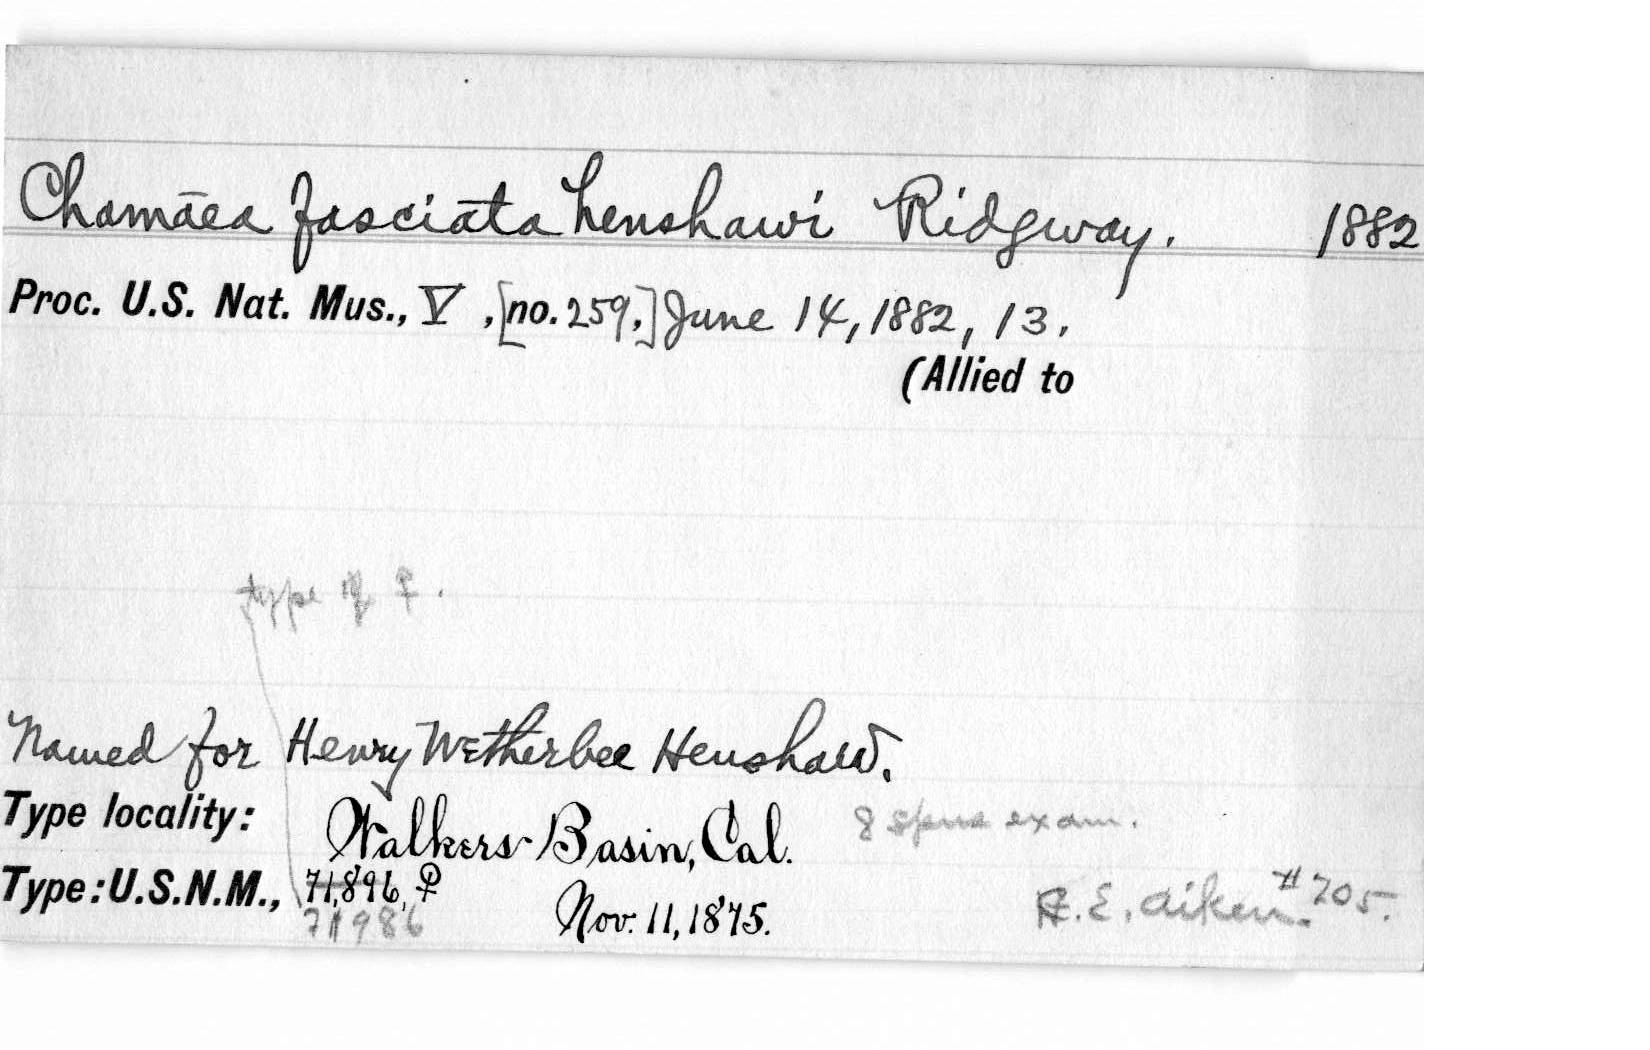 Chamāea fasciāta henshawi Ridgway. 1882
Proc. U.S. Nat. Mus., V, [no. 259,] June 14, 1882, 13.
(Allied to
type of ♀.
Named for Henry Wetherbee Henshaw.
Type locality: Walkers Basin, Cal. 8 spms exam.
Type: U.S.N.M., 71,896, ♀ Nov. 11, 1875. H. E. Aiken. #705.
71986